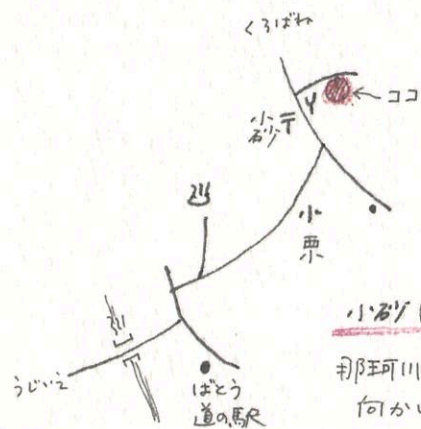 くろばね
ココ
小砂〒
♨
小栗
川
うじいえ
ばとう
道の駅
小砂
那珂川